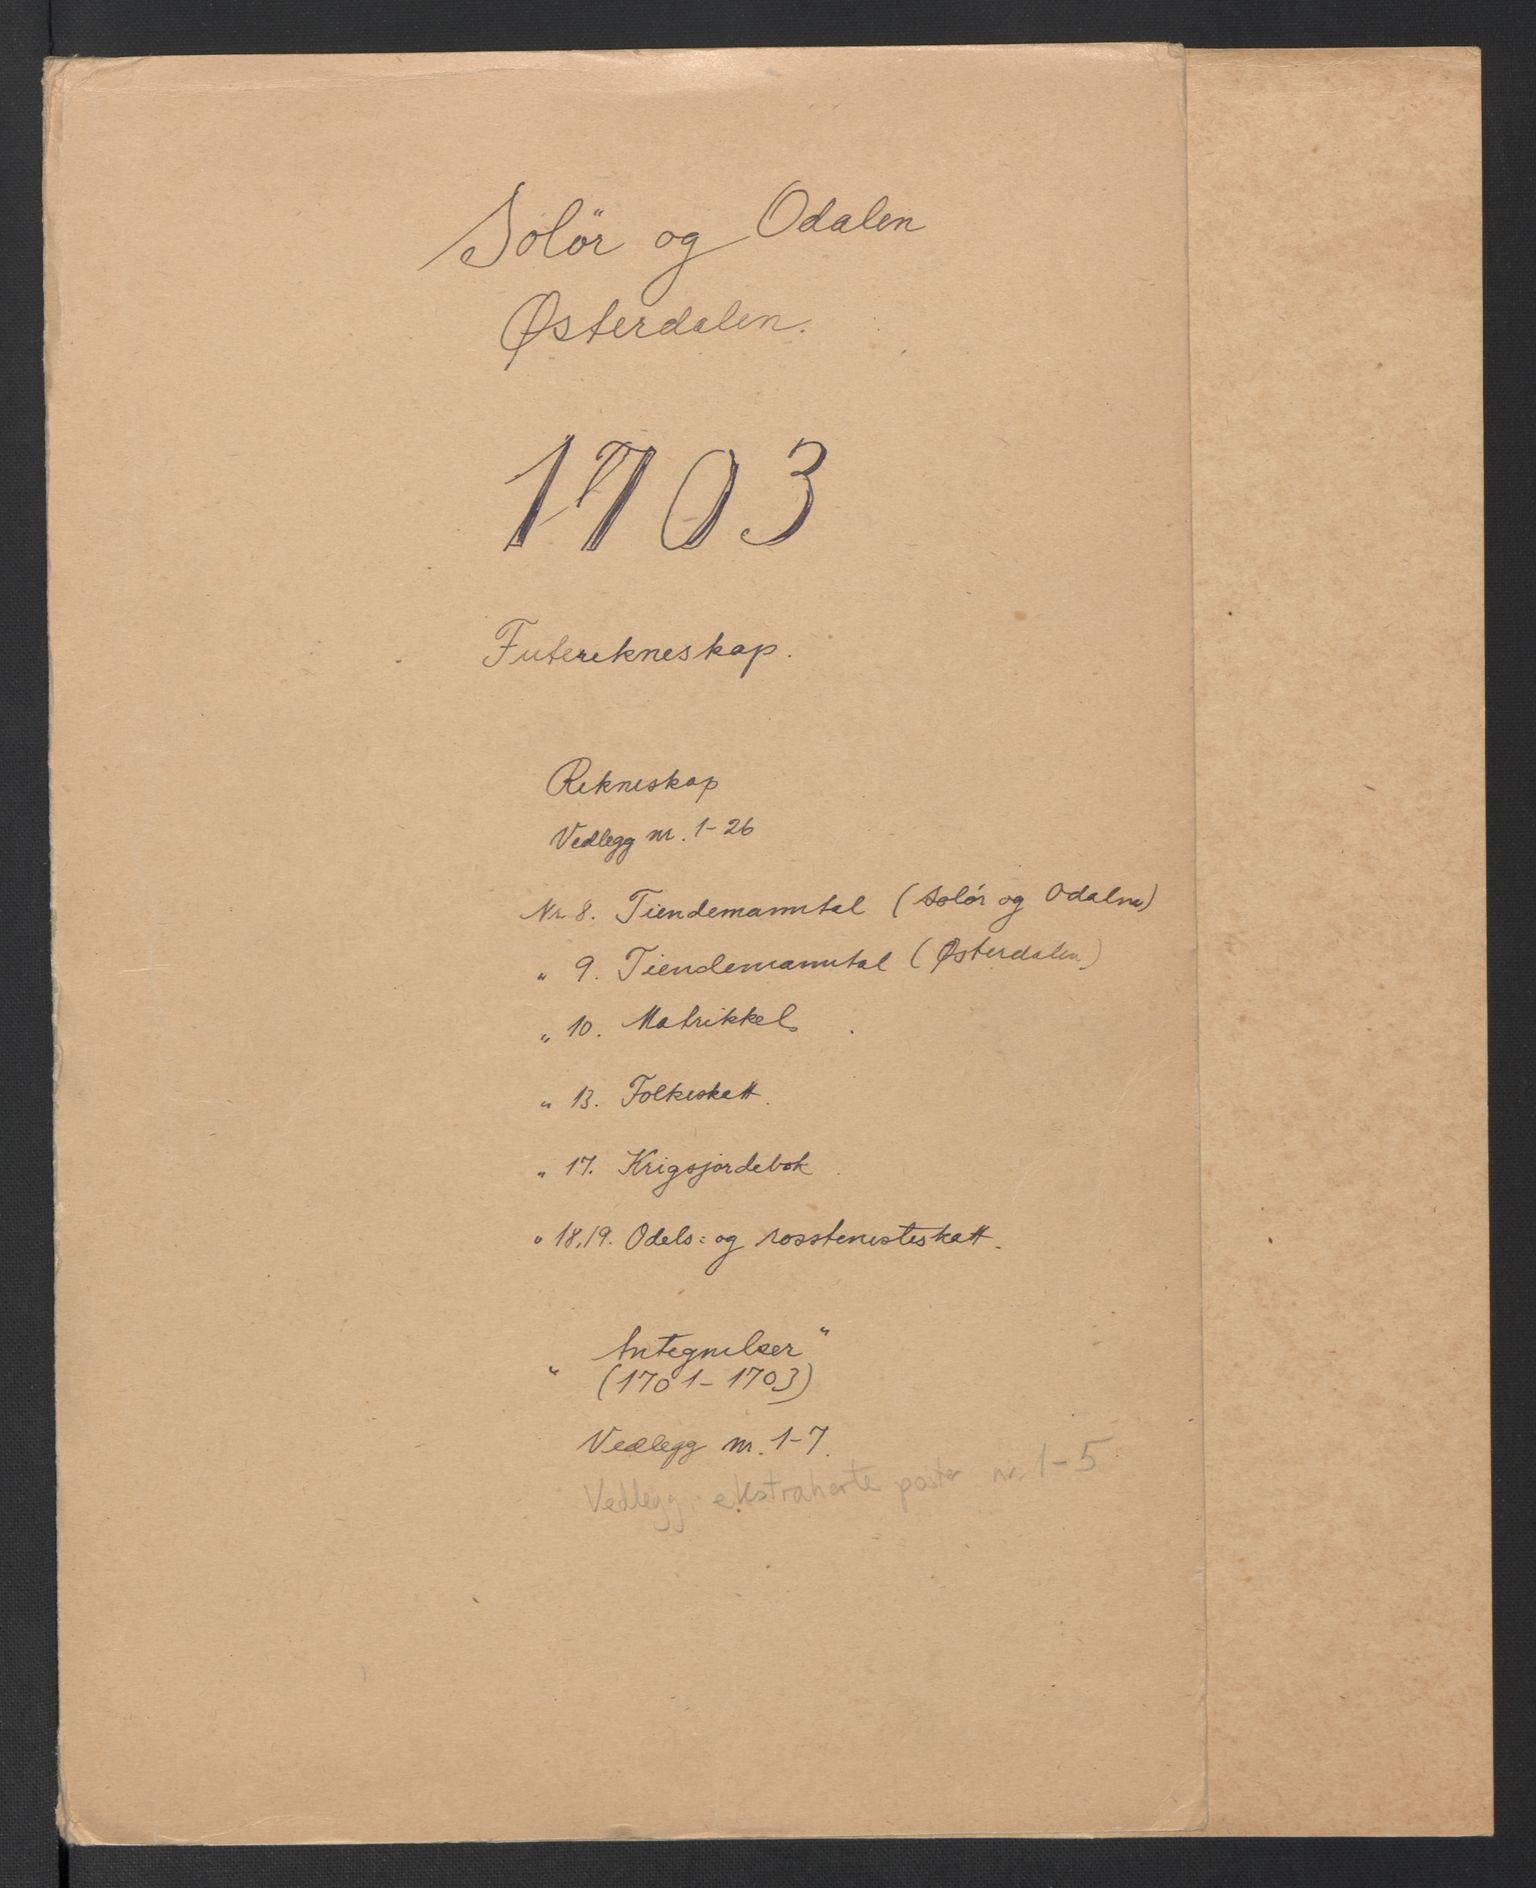 Solör og Odalen
Østerdalen.
1703
Futerekneskap.
Rekneskap
Vedlegg nr. 1-26
Nr. 8. Tiendemanntal (Solør og Odalen)
" 9. Tiendemanntal (Østerdalen)
" 10. Matrikkel
" 13. Folkeskatt.
" 17. Krigsjordebok
" 18,19. Odels= og rosstenesteskatt.
" Antegnelser "
(1701-1703)
Vedlegg nr. 1-7.
Vedlegg, ekstraherte poster nr. 1-5